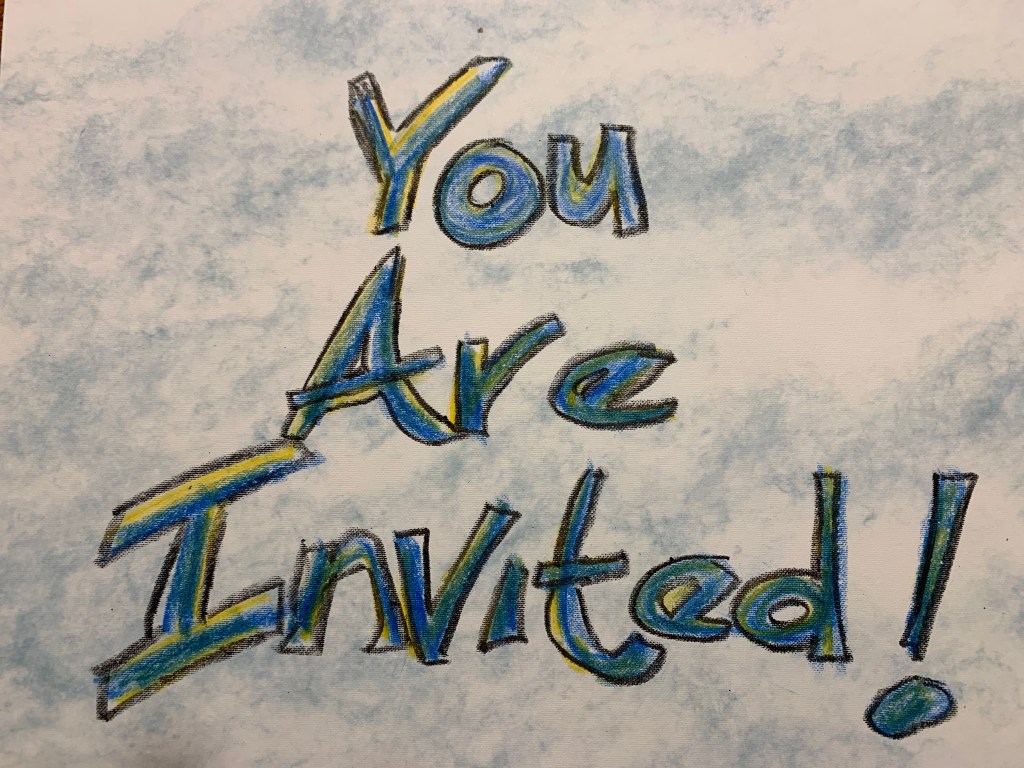 You
Are
Invited!